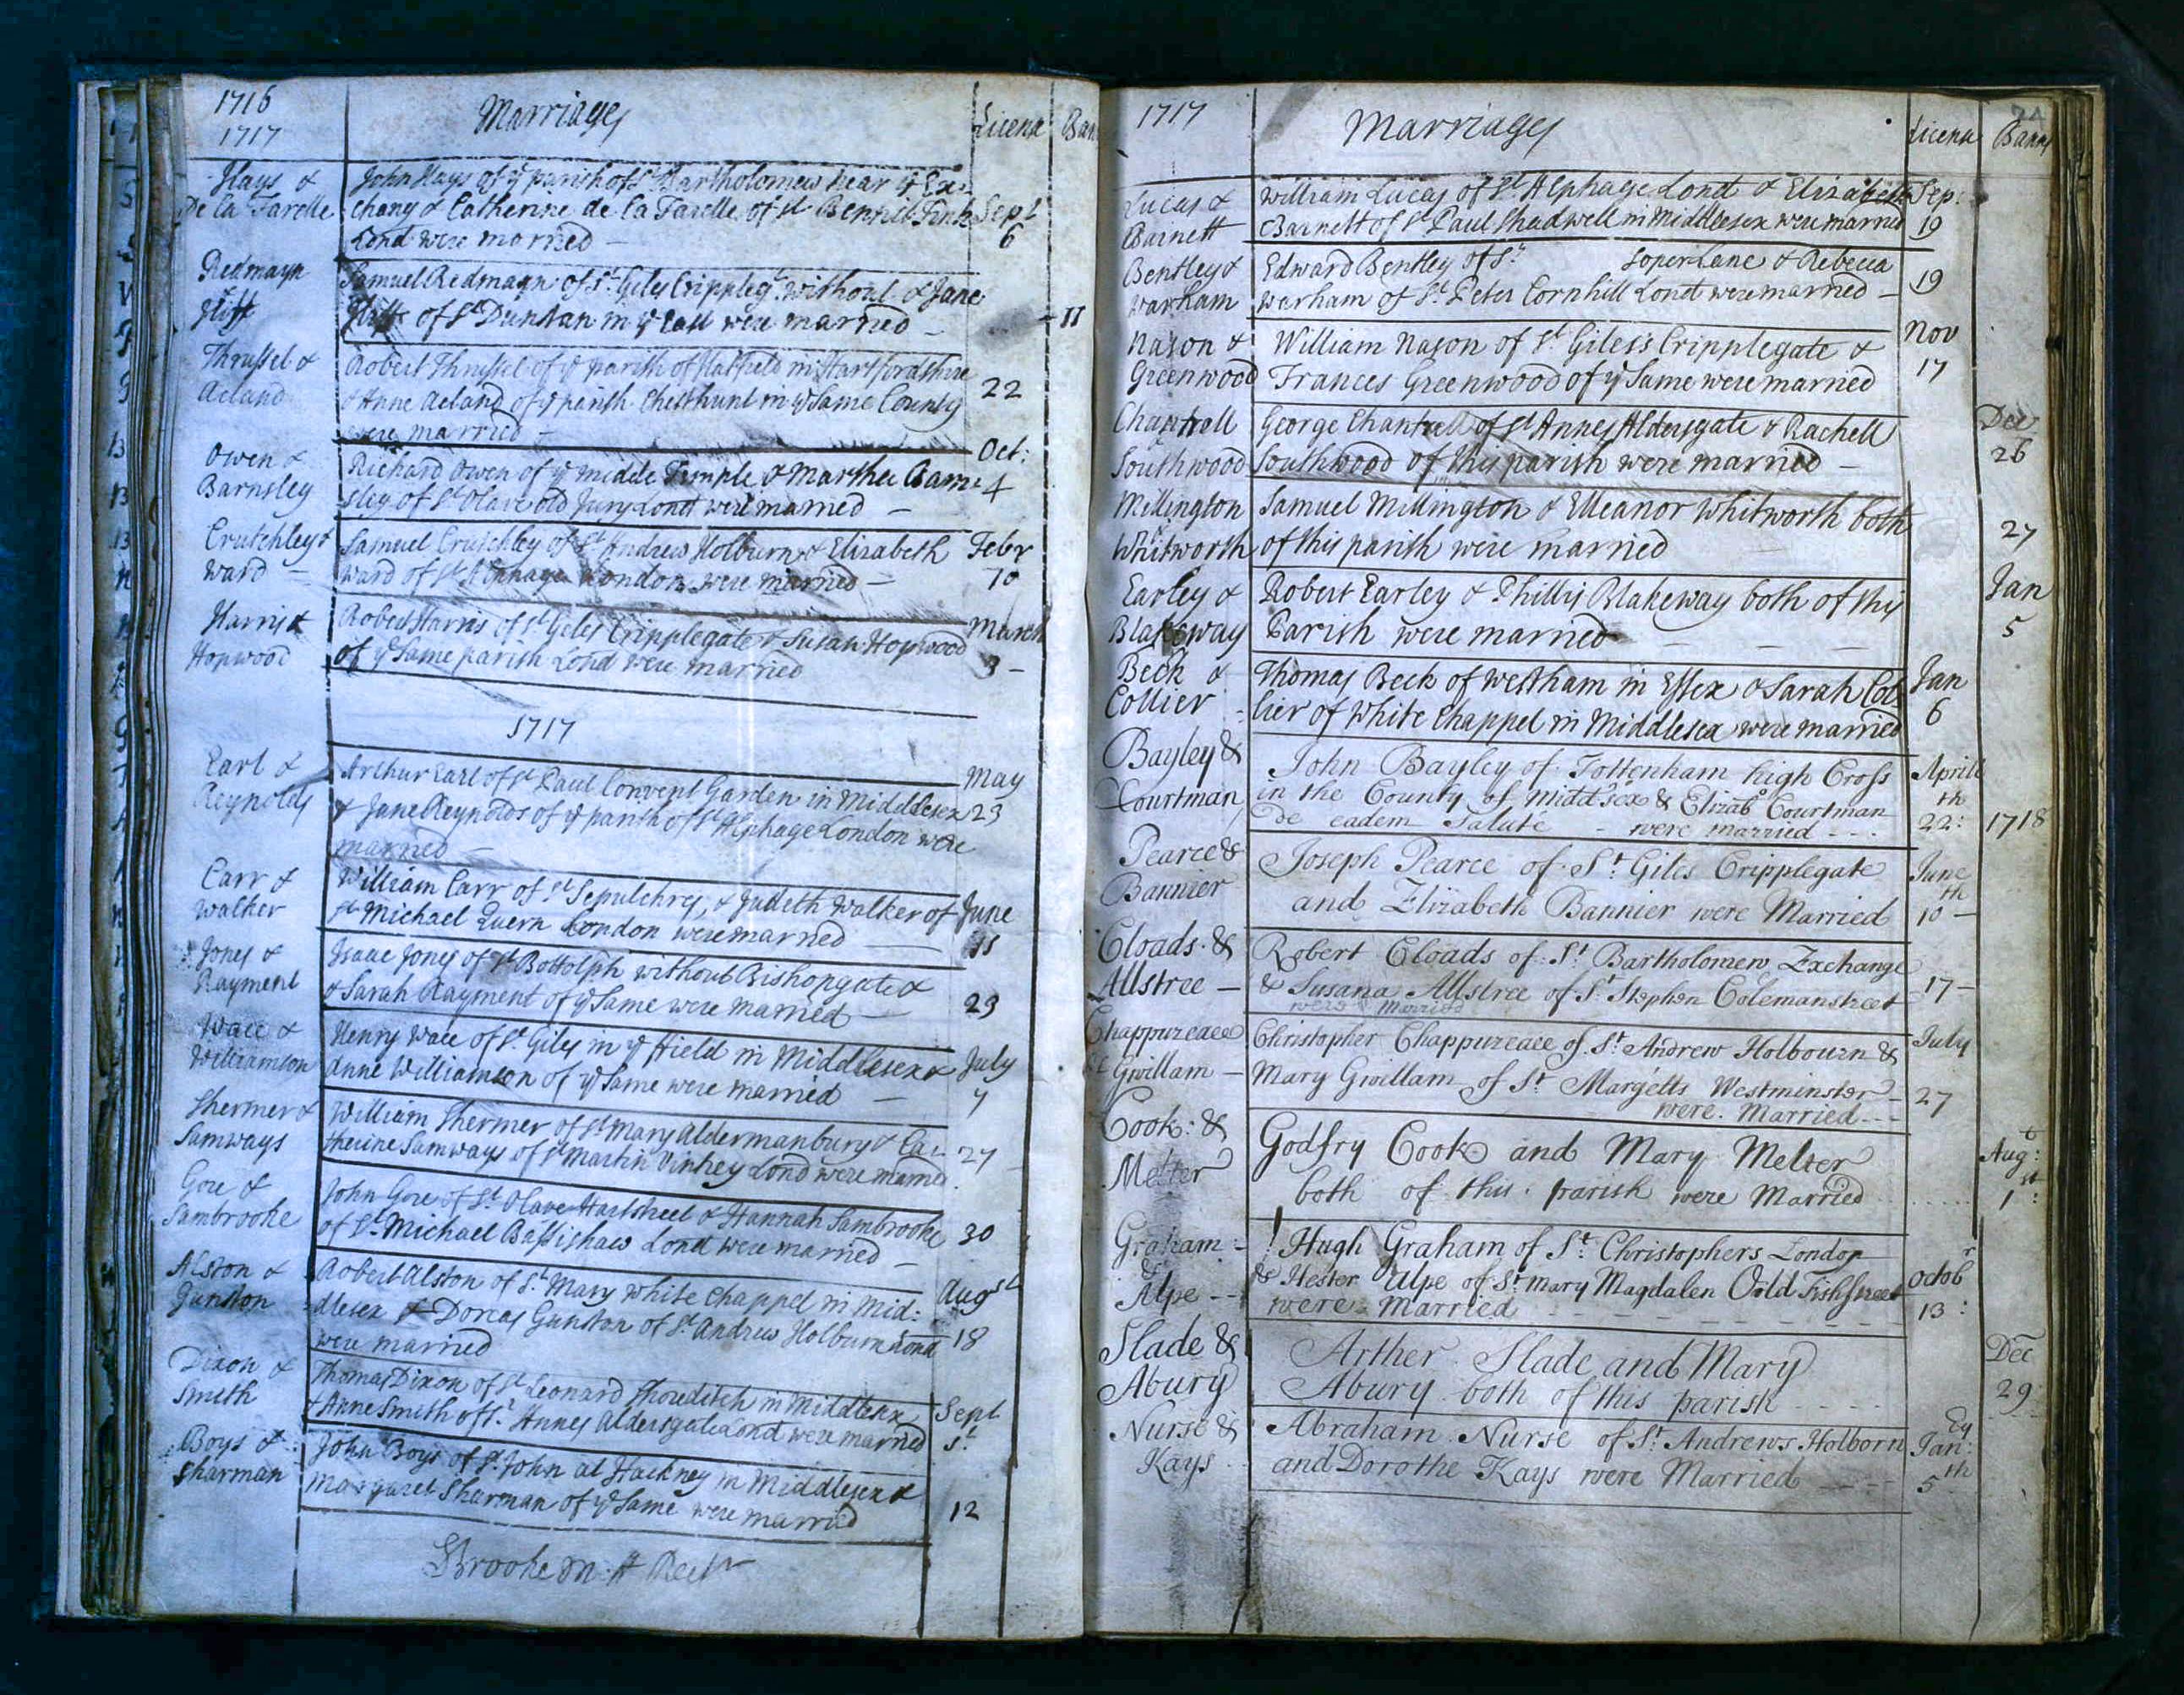 1716
1717
Marriages
Licence
Hays &
De la Farelle
John Hays of ye parish of St Bartholomew near ye Ex=
chang & Catherine de la Farelle of St Bennit Fink
Lond were married —
Sept
6
Redmayn
&
Samuel Redmayn of St Giles Crippleg: without & Jane
of St Dunstan in ye East were married —
11
Thrussel &
Acland
Robert Thrussel of ye parish of Hatfield in Hartfordshire
& Anne Acland of ye parish Chesthunt in ye Same County
were married —
22
Owen &
Barnsley
Richard Owen of ye middle Temple & Martha Barn=
sley of St Olave old Jury Lond were married —
Oct:
4
Crutchley &
Ward —
Samuel Crutchley of St Andrew Holburn & Elizabeth
Ward of St Alphage London were married —
Febr
10
Harris &
Hopwood
Robert Harris of St Giles Cripplegate & Susan Hopwood
of ye Same parish Lond were married
March
3 —
1717
Earl &
Reynolds
Arthur Earl of St Paul Convent Garden in Middlesex
& Jane Reynolds of ye parish of St Alphage London were
married —
May
23
Carr &
Walker
William Carr of St Sepulchres, & Judeth Walker of
St Michael Quern London were married —
June
11
Jones &
Rayment
Isaac Jones of St Bottolph without Bishopgate &
& Sarah Rayment of ye Same were married —
23
Wace &
Williamson
Henry Wace of St Giles in ye Field in Middlesex &
Anne Williamson of ye Same were married —
July
7
Shermer &
Samways
William Shermer of St Mary Aldermanbury & Ca=
therine Samways of St Martin Vintrey Lond were married
27
Gore &
Sambrooke
John Gore of St Olave Hartstreet & Hannah Sambrooke
of St Michael Bassishaw Lond were married —
30
Alston &
Gunston
Robert Alston of St Mary white Chappel in Mid:
dlesex & Dorcas Gunston of St Andrew Holburn Lond
were married
Augst
18
Dixon &
Smith
Thomas Dixon of St Leonard Shoreditch in Middlesex
& Anne Smith of St Annes Aldersgate Lond were married
Sept
Boys &
Sharman
John Boys of St John at Hackney in Middlesex &
Margaret Sharman of ye Same were married
12
1717
Marriages
Licence
Banns
Lucas &
Barnett
William Lucas of St Alphage Lond & Elizabeth
Barnett of St Paul Shadwell in Middlesex were married
Sep:
19
Bentley &
Warham
Edward Bentley of St Soper Lane & Rebecca
Warham of St Peter Cornhill Lond were married —
19
Nason &
Greenwood
William Nason of St Giles's Cripplegate &
Frances Greenwood of ye Same were married
Nov
17
Chantrell
Southwood
George Chantrell of St Annes Aldersgate & Rachell
Southwood of this parish were married —
Dec
26
Millington
&
Whitworth
Samuel Millington & Elleanor Whitworth both
of this parish were married
27
Earley &
Blakeway
Robert Earley & Phillis Blakeway both of this
Parish were married
Jan
5
Beck &
Collier
Thomas Beck of Westham in Essex & Sarah Col=
lier of White Chappel in Middlesex were married
Jan
6
Bayley &
Courtman
John Bayley of Tottenham high Cross
in the County of Midd'sex & Elizab: Courtman
de eadem Salute - were married - - -
Aprill
th
22:
1718
Pearce &
Bannier
Joseph Pearce of St Giles Cripplegate
and Elizabeth Bannier were Married
June
th
10 —
Cloads &
Allstree —
Robert Cloads of St Bartholomew Exchange
& Susana Allstree of St Stephen Colemanstreet
were Married
17 —
Chappureace
& Gwillam —
Christopher Chappureace of St Andrew Holbourn &
Mary Gwillam of St Margetts Westminster
were Married - - -
July
27
Cook: &
Melter
Godfry Cook and Mary Melter
both of this parish were Married
Augt:
st
1:
Graham:
&
Alpe - -
Hugh Graham of St Christophers London
& Hester Alpe of St mary Magdalen Oold Fishstreet
were Married
Octobr
13:
Slade &
Abury
Arther Slade and Mary
Abury both of this parish
Dec
29
Nurse &
Kays
Abraham Nurse of St Andrews Holborn
and Dorothe Kays were Married
Jan:
5th